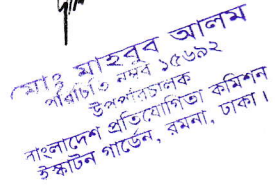 মোঃ মাহবুব আলম
পরিচিতি নম্বর ১৫৬৯২
উপপরিচালক
বাংলাদেশ প্রতিযোগিতা কমিশন
ইস্কাটন গার্ডেন, রমনা, ঢাকা।